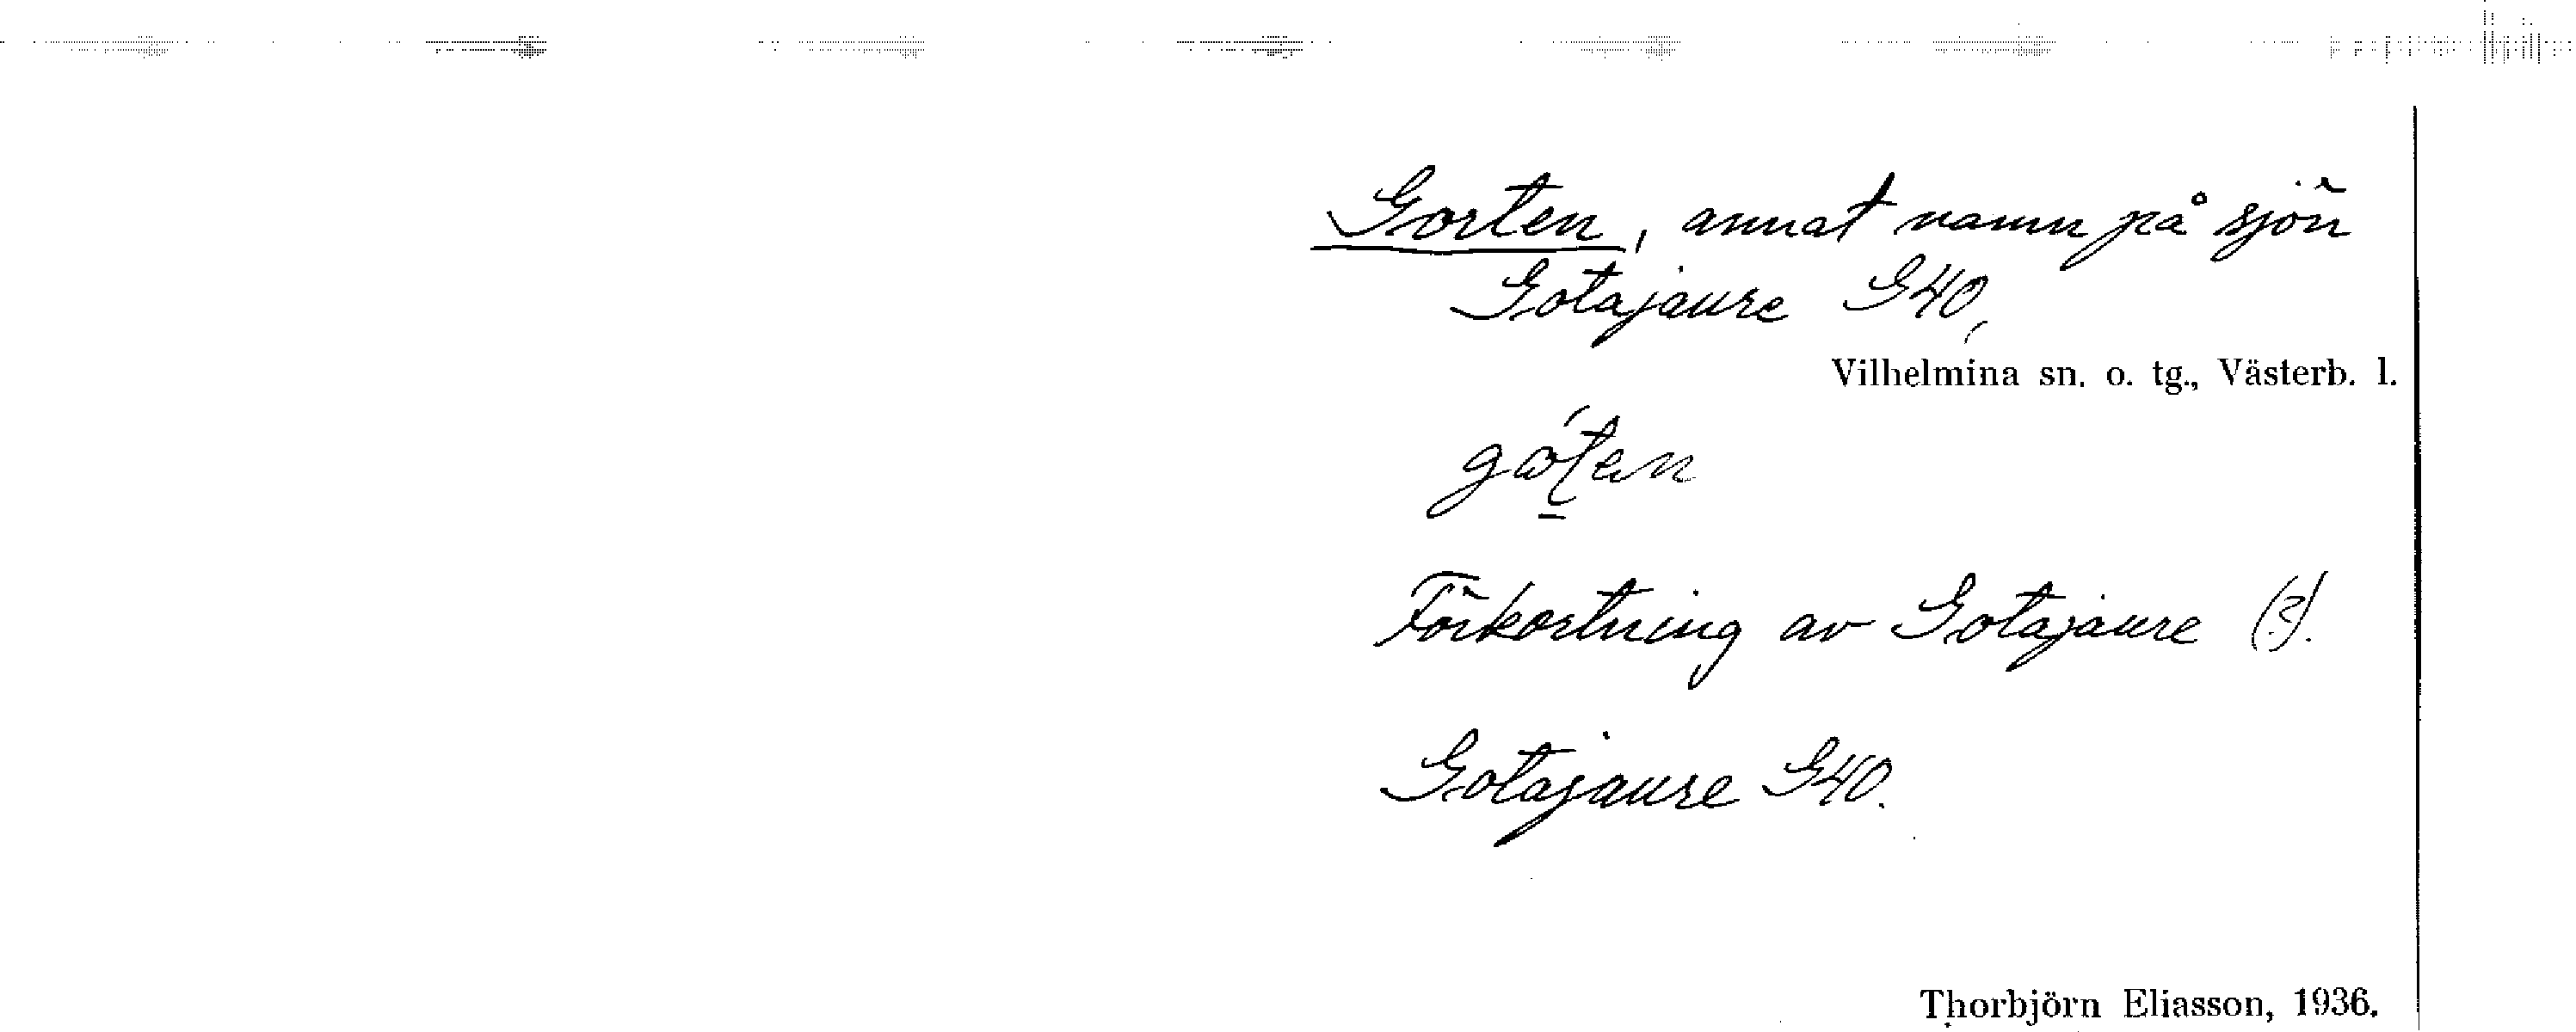 Gorten, annat namn på sjön
Gotajaure G40,
Vilhelmina sn. o. tg., Västerb. l.
Förkortning av Gotajaure (?).
Gotajaure G40.
Thorbjörn Eliasson, 1936.